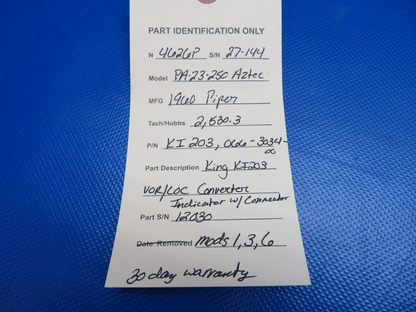 PART IDENTIFICATION ONLY
N 4626P S/N 27-144
Model PA-23-250 Aztec
MFG 1960 Piper
Tach/Hobbs 2,530.3
P/N KI 203, 066-3034-
00
Part Description King KI203
VOR/LOC Converter
Indicator w/ Connector
Part S/N 12030
Date Removed mods 1, 3, 6
30 day warranty